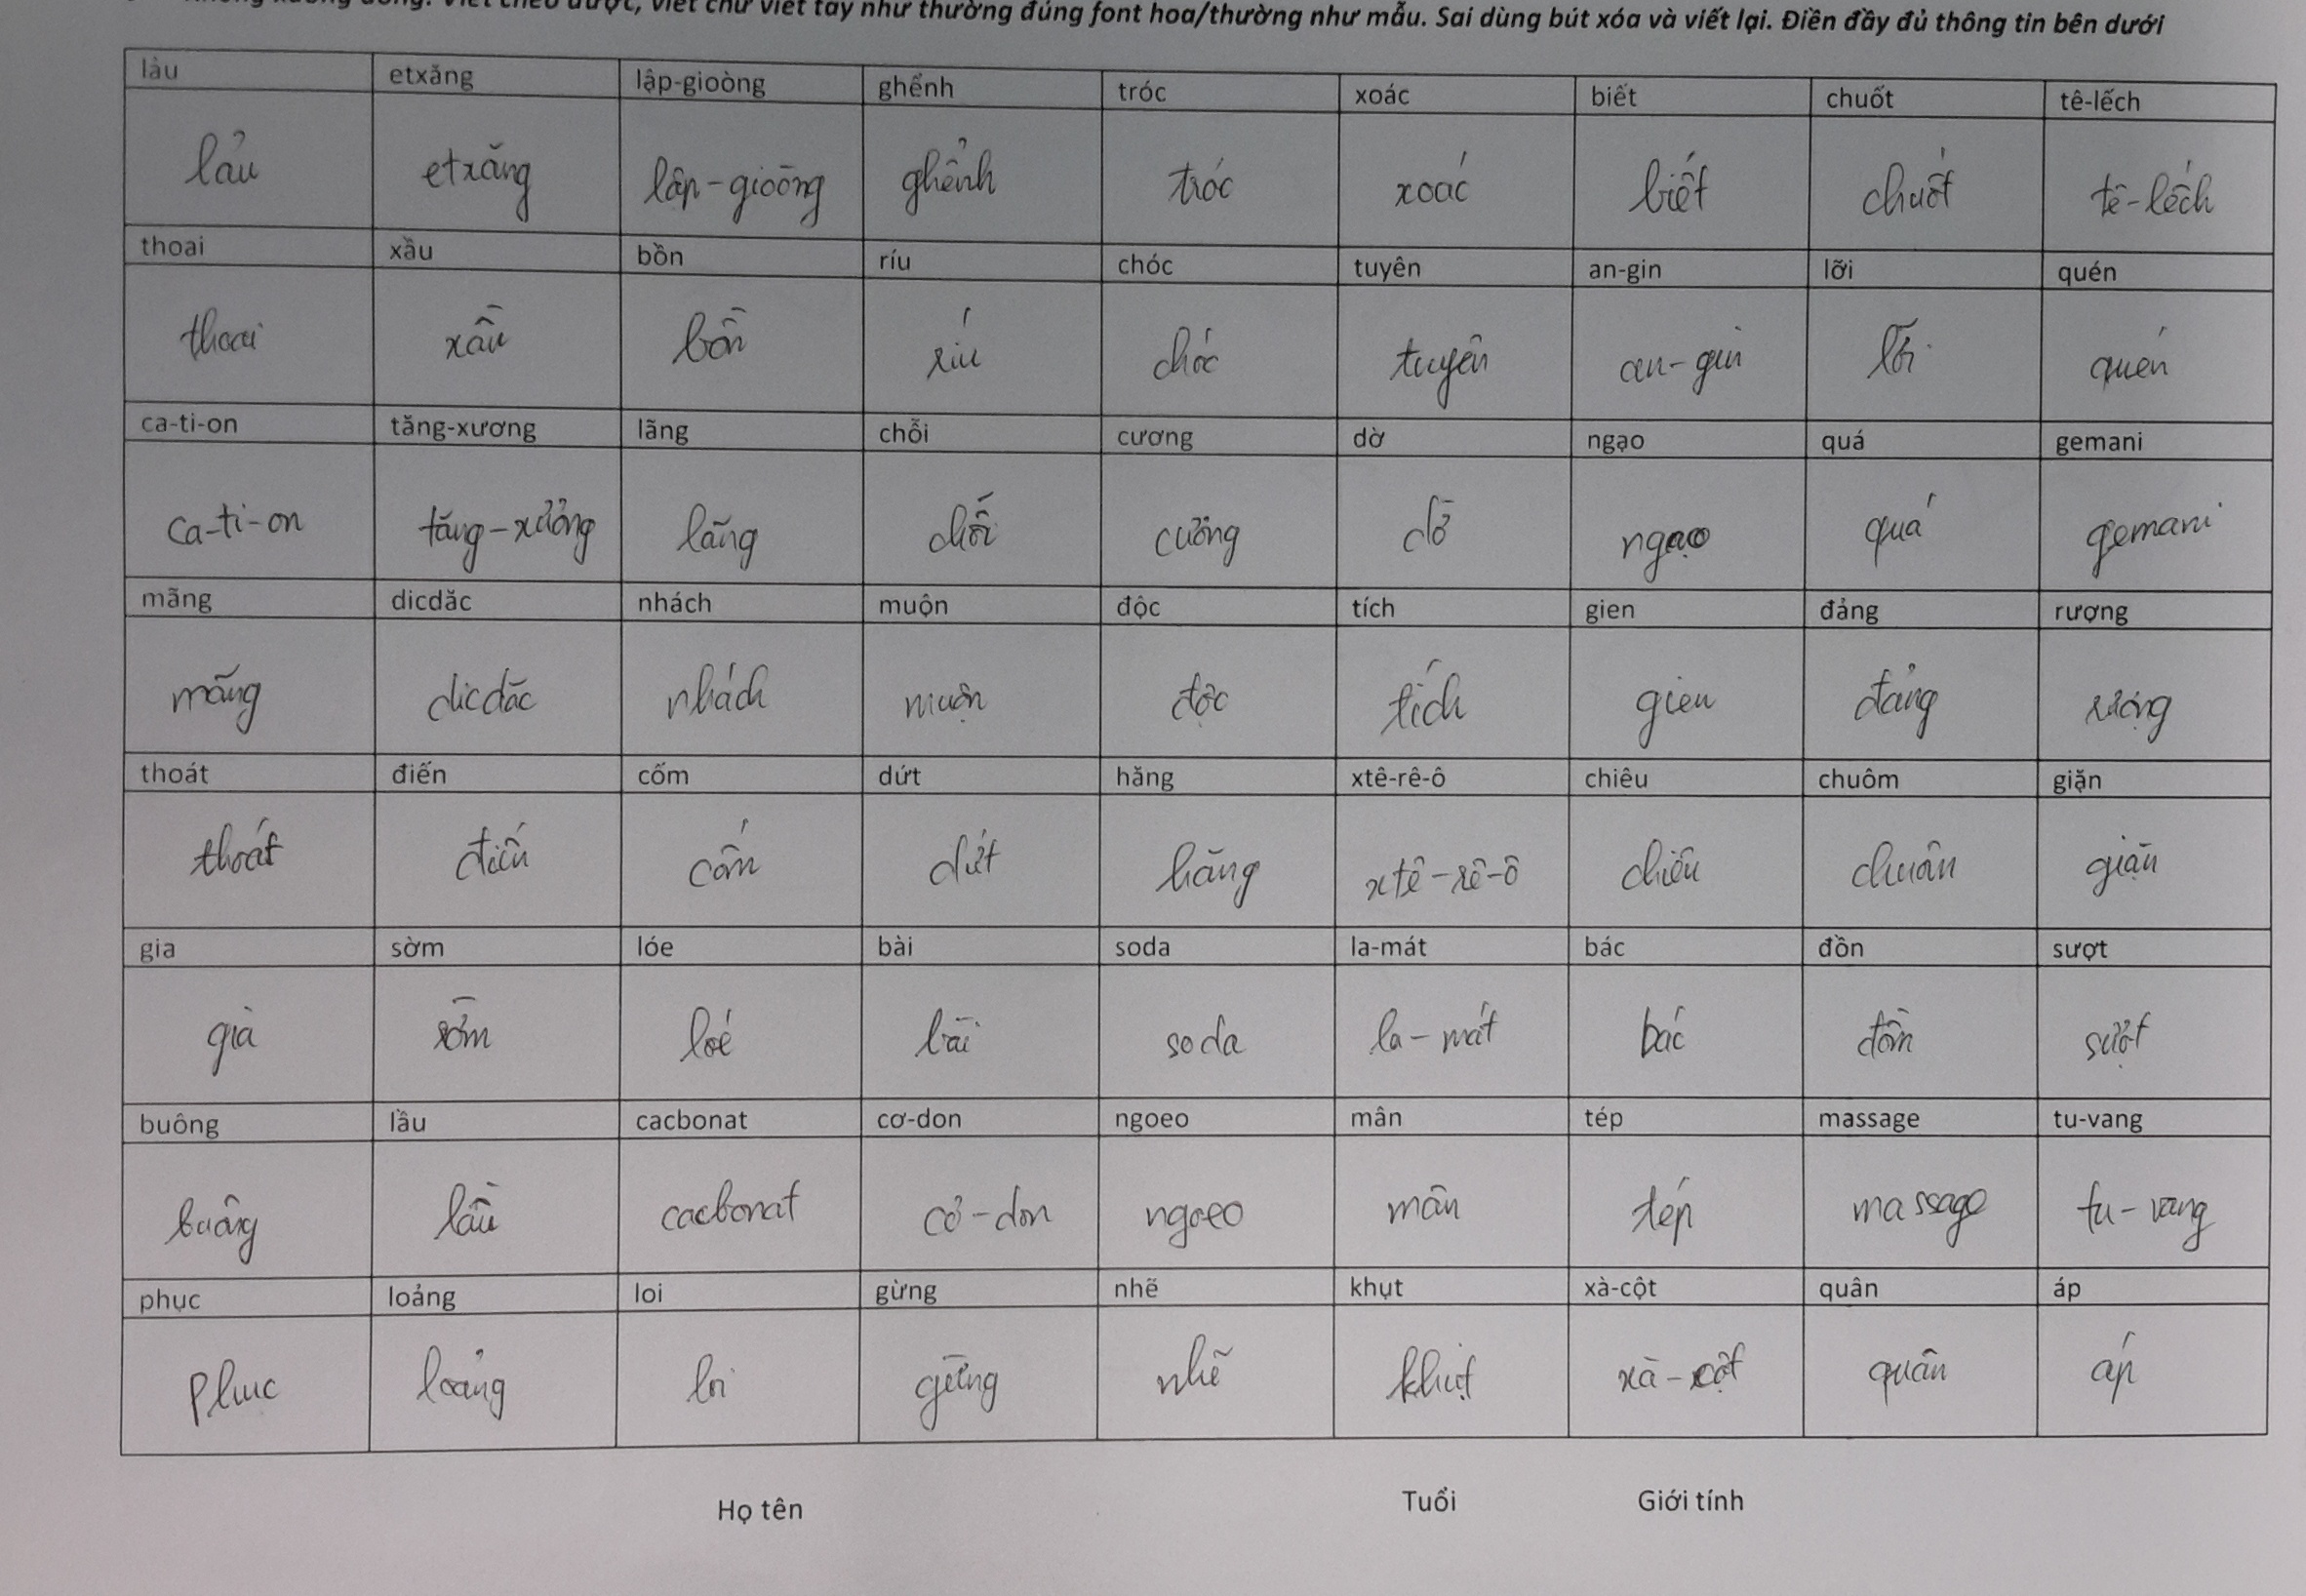 không xuống dòng. Viết theo được, viết chữ viết tay như thường đúng font hoa/thường như mẫu. Sai dùng bút xóa và viết lại. Điền đầy đủ thông tin bên dưới
làu etxăng lập-gioòng ghểnh tróc xoác biết chuốt tê-lếch
lảu etxăng lâp-gioòng ghểnh tróc xoác biết chuốt tê-lếch
thoai xầu bồn ríu chóc tuyên an-gin lỡi quén
thoai xầu bồn ríu chóc tuyên an-gin lỡi quén
ca-ti-on tăng-xương lãng chỗi cương dờ ngạo quá gemani
ca-ti-on tăng-xương lãng chỗi cương dờ ngạo quá gemani
mãng dicdăc nhách muộn độc tích gien đảng rượng
mãng dicdăc nhách muộn độc tích gien đảng rượng
thoát điến cốm dứt hăng xtê-rê-ô chiêu chuôm giặn
thoát điến cốm dứt hăng xtê-rê-ô chiêu chuôm giặn
gia sờm lóe bài soda la-mát bác đồn sượt
già sờm loé bài soda la-mát bác đồn sượt
buông lầu cacbonat cơ-don ngoeo mân tép massage tu-vang
buông lầu cacbonat cơ-don ngoeo mân tép massage tu-vang
phục loảng loi gừng nhẽ khụt xà-cột quân áp
phuc loảng loi gừng nhẽ khụt xà-cột quân áp
Họ tên Tuổi Giới tính